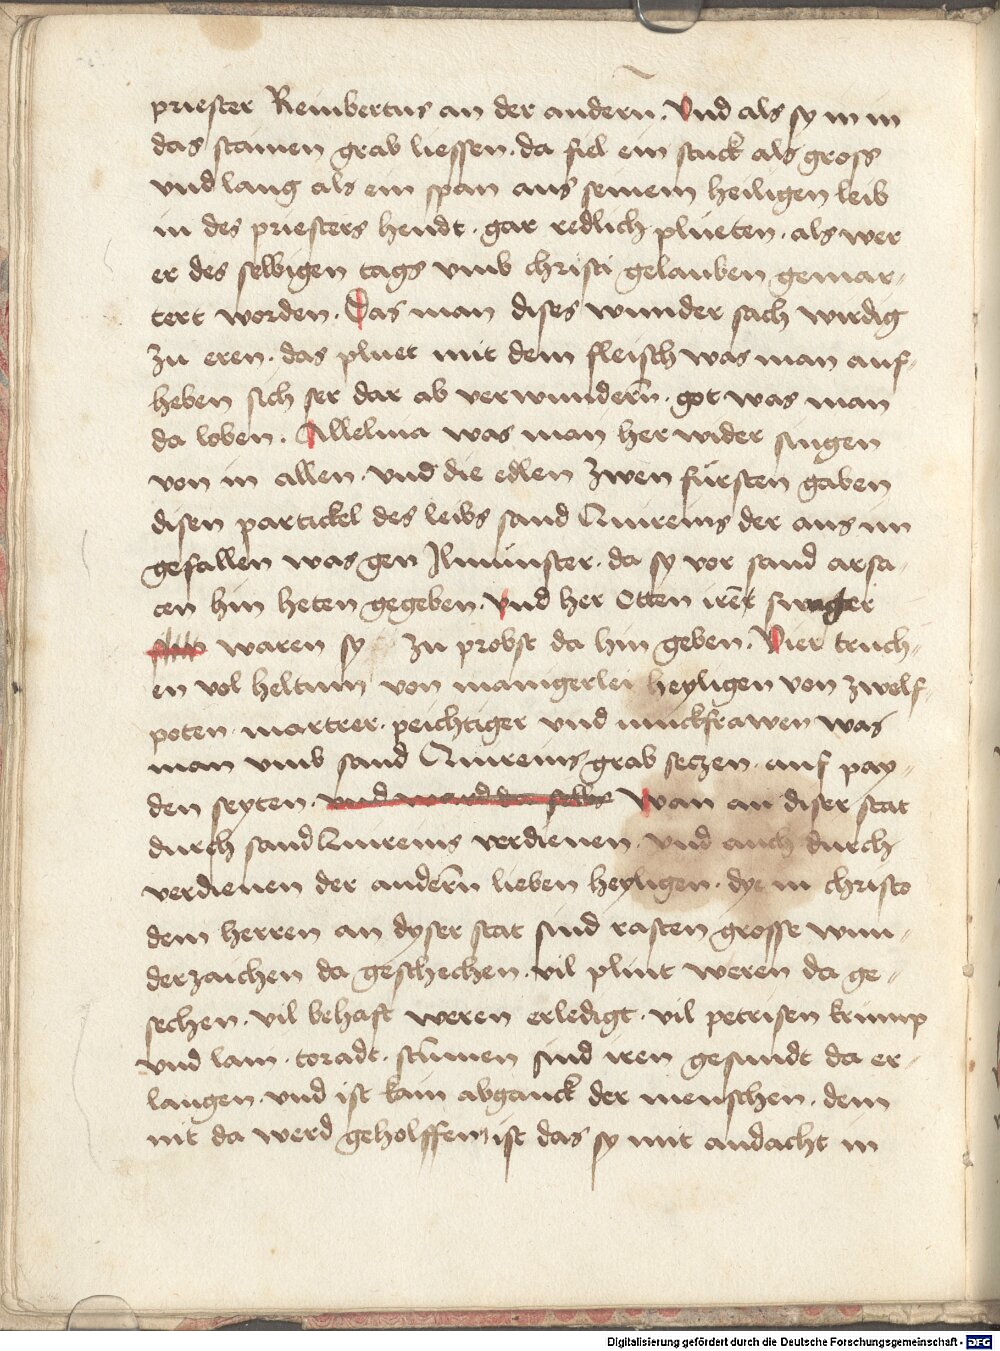 priester Reinbertus an der andern. Vnd als sy in in
das stainen grab liessen. da fiel ein stuck als gross
vnd lang als ein span aus seinem heiligen leib
in des priesters hendt. gar redlich plueten. als wer
er des selbigen tags vmb christi gelauben gemar-
tert worden. Das man dises wunder sach wirdig
zu eren. das pluet mit dem fleisch was man auf-
heben sich ser dar ab verwundern. got was man
da loben. Alleluia was man her wider singen
von in allen. vnd die edlen zwen fürsten gaben
disen partickel des leibs sand Quireins der aus im
gefallen was gen Ilmünster. da sy vor sand arsa-
cen hin heten gegeben. vnd her Otten irer swager
waren sy zu probst da hin geben. Vier truch-
en vol heltum von manigerlei heyligen von zwelf-
poten. martrer. peichtiger vnd iunckfrawen was
man vmb sand Quireins grab seczen. auf pay-
den seyten. vnd ward da selbs Wan an diser stat
durch sand Quireins verdienen. vnd auch durch
verdienen der andern lieben heyligen. dye in christo
dem herren an dyser stat sind rasten grosse wun-
derzaichen da geschechen. vil plint weren da ge-
sechen. vil behaft weren erledigt. vil petrisen krump
vnd lam. toradt. stumen sind iren gesundt da er-
langen. vnd ist kain abganck der menschen. dem
nit da werd geholffen, ist das sy mit andacht in
Digitalisierung gefördert durch die Deutsche Forschungsgemeinschaft - DFG